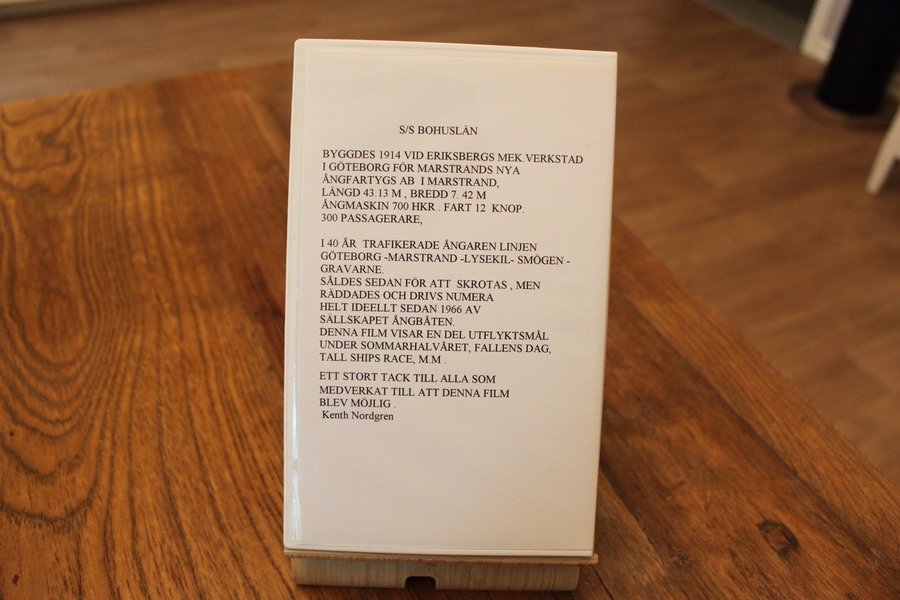 S/S BOHUSLÄN
BYGGDES 1914 VID ERIKSBERGS MEK.VERKSTAD
I GÖTEBORG FÖR MARSTRANDS NYA
ÅNGFARTYGS AB I MARSTRAND,
LÄNGD 43.13 M , BREDD 7. 42 M
ÅNGMASKIN 700 HKR . FART 12 KNOP.
300 PASSAGERARE,
I 40 ÅR TRAFIKERADE ÅNGAREN LINJEN
GÖTEBORG -MARSTRAND -LYSEKIL- SMÖGEN -
GRAVARNE.
SÅLDES SEDAN FÖR ATT SKROTAS , MEN
RÄDDADES OCH DRIVS NUMERA
HELT IDEELLT SEDAN 1966 AV
SÄLLSKAPET ÅNGBÅTEN.
DENNA FILM VISAR EN DEL UTFLYKTSMÅL
UNDER SOMMARHALVÅRET, FALLENS DAG,
TALL SHIPS RACE, M.M .
ETT STORT TACK TILL ALLA SOM
MEDVERKAT TILL ATT DENNA FILM
BLEV MÖJLIG .
Kenth Nordgren